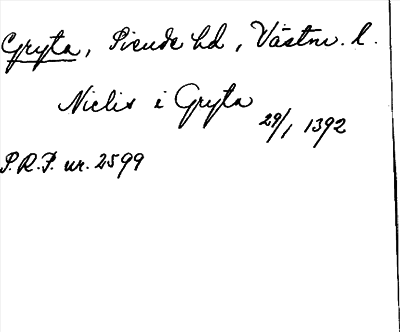 Gryta, Siende hd, Västm. l.
Niclis i Gryta
29/1 1392
P.R.P. nr. 2599